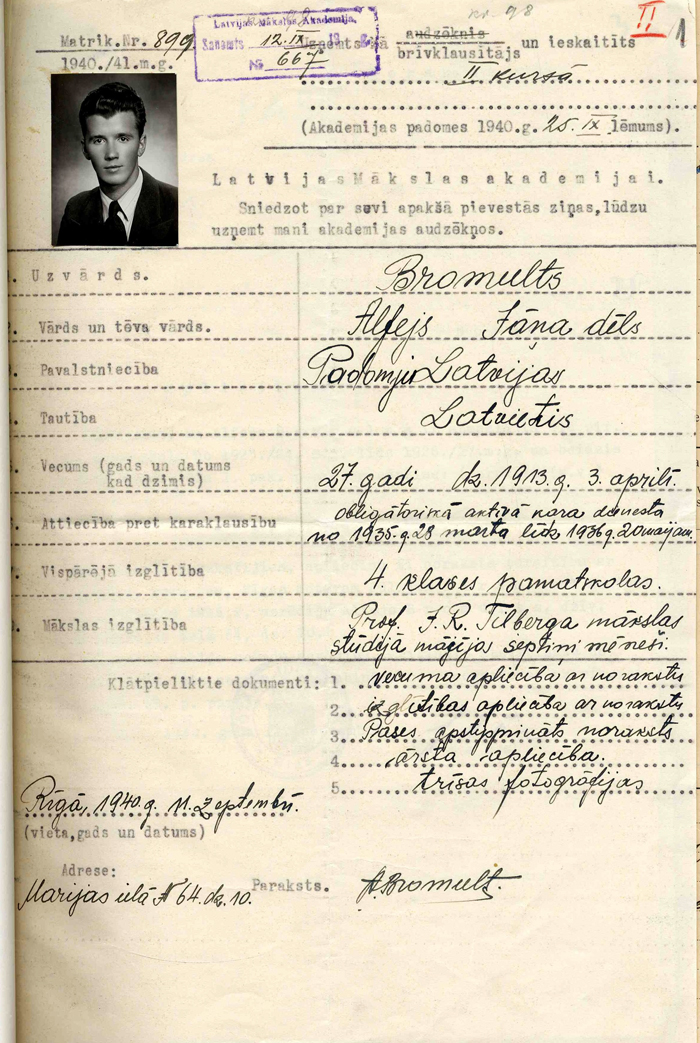 nr. 98
II 1
Latvijas Mākslas Akadēmija,
Saņemts 12.IX 19 g.
№ 667
Matrik.Nr. 899
1940./41.m.g.
Uzņemts kā audzēknis
brīvklausītājs un ieskaitīts
II kursā
(Akadēmijas padomes 1940.g. 25. IX lēmums).
Latvijas Mākslas akadēmijai.
Sniedzot par sevi apakšā pievestās ziņas, lūdzu
uzņemt mani akadēmijas audzēkņos.
Uzvārds. Bromults
Vārds un tēva vārds. Alfejs Jāņa dēls
Pavalstniecība Padomju Latvijas
Tautība Latvietis
Vecums (gads un datums
kad dzimis) 27. gadi dz. 1913.g. 3. aprīlī.
Attiecība pret karaklausību obligātoriskā aktīvā kara dienesta
no 1935.g 28 marta līdz 1936.g. 20 maijam
7. Vispārējā izglītība 4. klases pamatskolas.
Mākslas izglītība Prof. J.R. Tilberga mākslas
stūdijā mācījā septiņi mēneši.
Klātpieliktie dokumenti: 1. vecuma apliecība ar norakstu
2. izglītības apliecība ar norakstu
3. Pases apstiprināts noraksts
4. ārsta apliecība.
5. trīsas fotogrāfijas
Rīgā, 1940.g. 11. Septembrī.
(vieta, gads un datums)
Adrese:
Marijas ielā № 64. dz. 10.
Paraksts. A. Bromult.